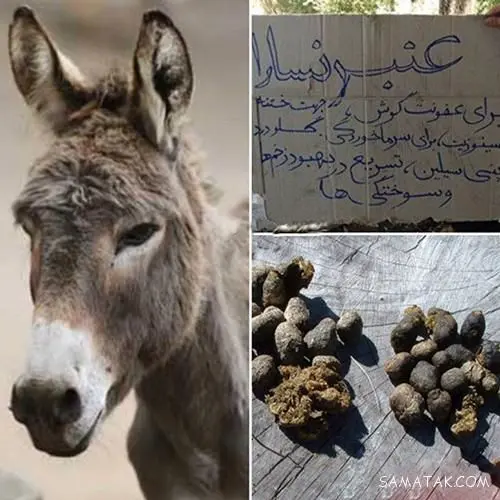 عنبر نسارا
برای عفونت گوش، جهت ختنه
سینوزیت، برای سرماخوردگی. گلودرد
پنی سیلین، تسریع در بهبود زخم‌ها
و سوختگی ها
SAMATAK.COM